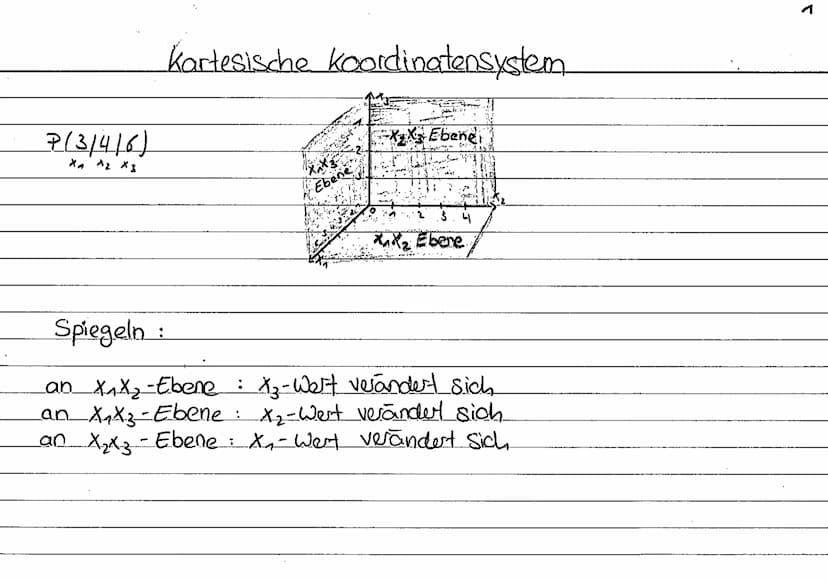 1
Kartesische Koordinatensystem
x₃
P(3/4/6)
x₁ x₂ x₃
x₂x₃ Ebene
x₁x₃
Ebene
x₂
0 1 2 3 4
x₁x₂ Ebene
x₁
Spiegeln :
an x₁x₂-Ebene : x₃-Wert verändert sich
an x₁x₃-Ebene : x₂-Wert verändert sich
an x₂x₃-Ebene : x₁-Wert verändert sich